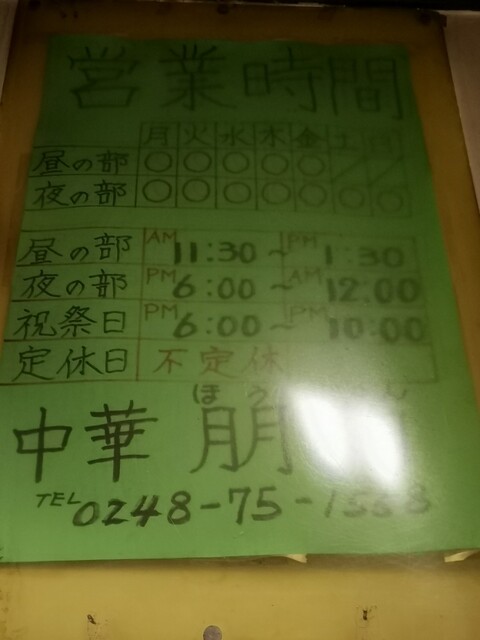 営業時間
月 火 水 木 金 土 日
昼の部 ○ ○ ○ ○ ○ / /
夜の部 ○ ○ ○ ○ ○ ○ ○
昼の部 AM 11:30 ~ PM 1:30
夜の部 PM 6:00 ~ AM 12:00
祝祭日 PM 6:00 ~ PM 10:00
定休日 不定休
ほう
中華 朋
TEL 0248-75-1558